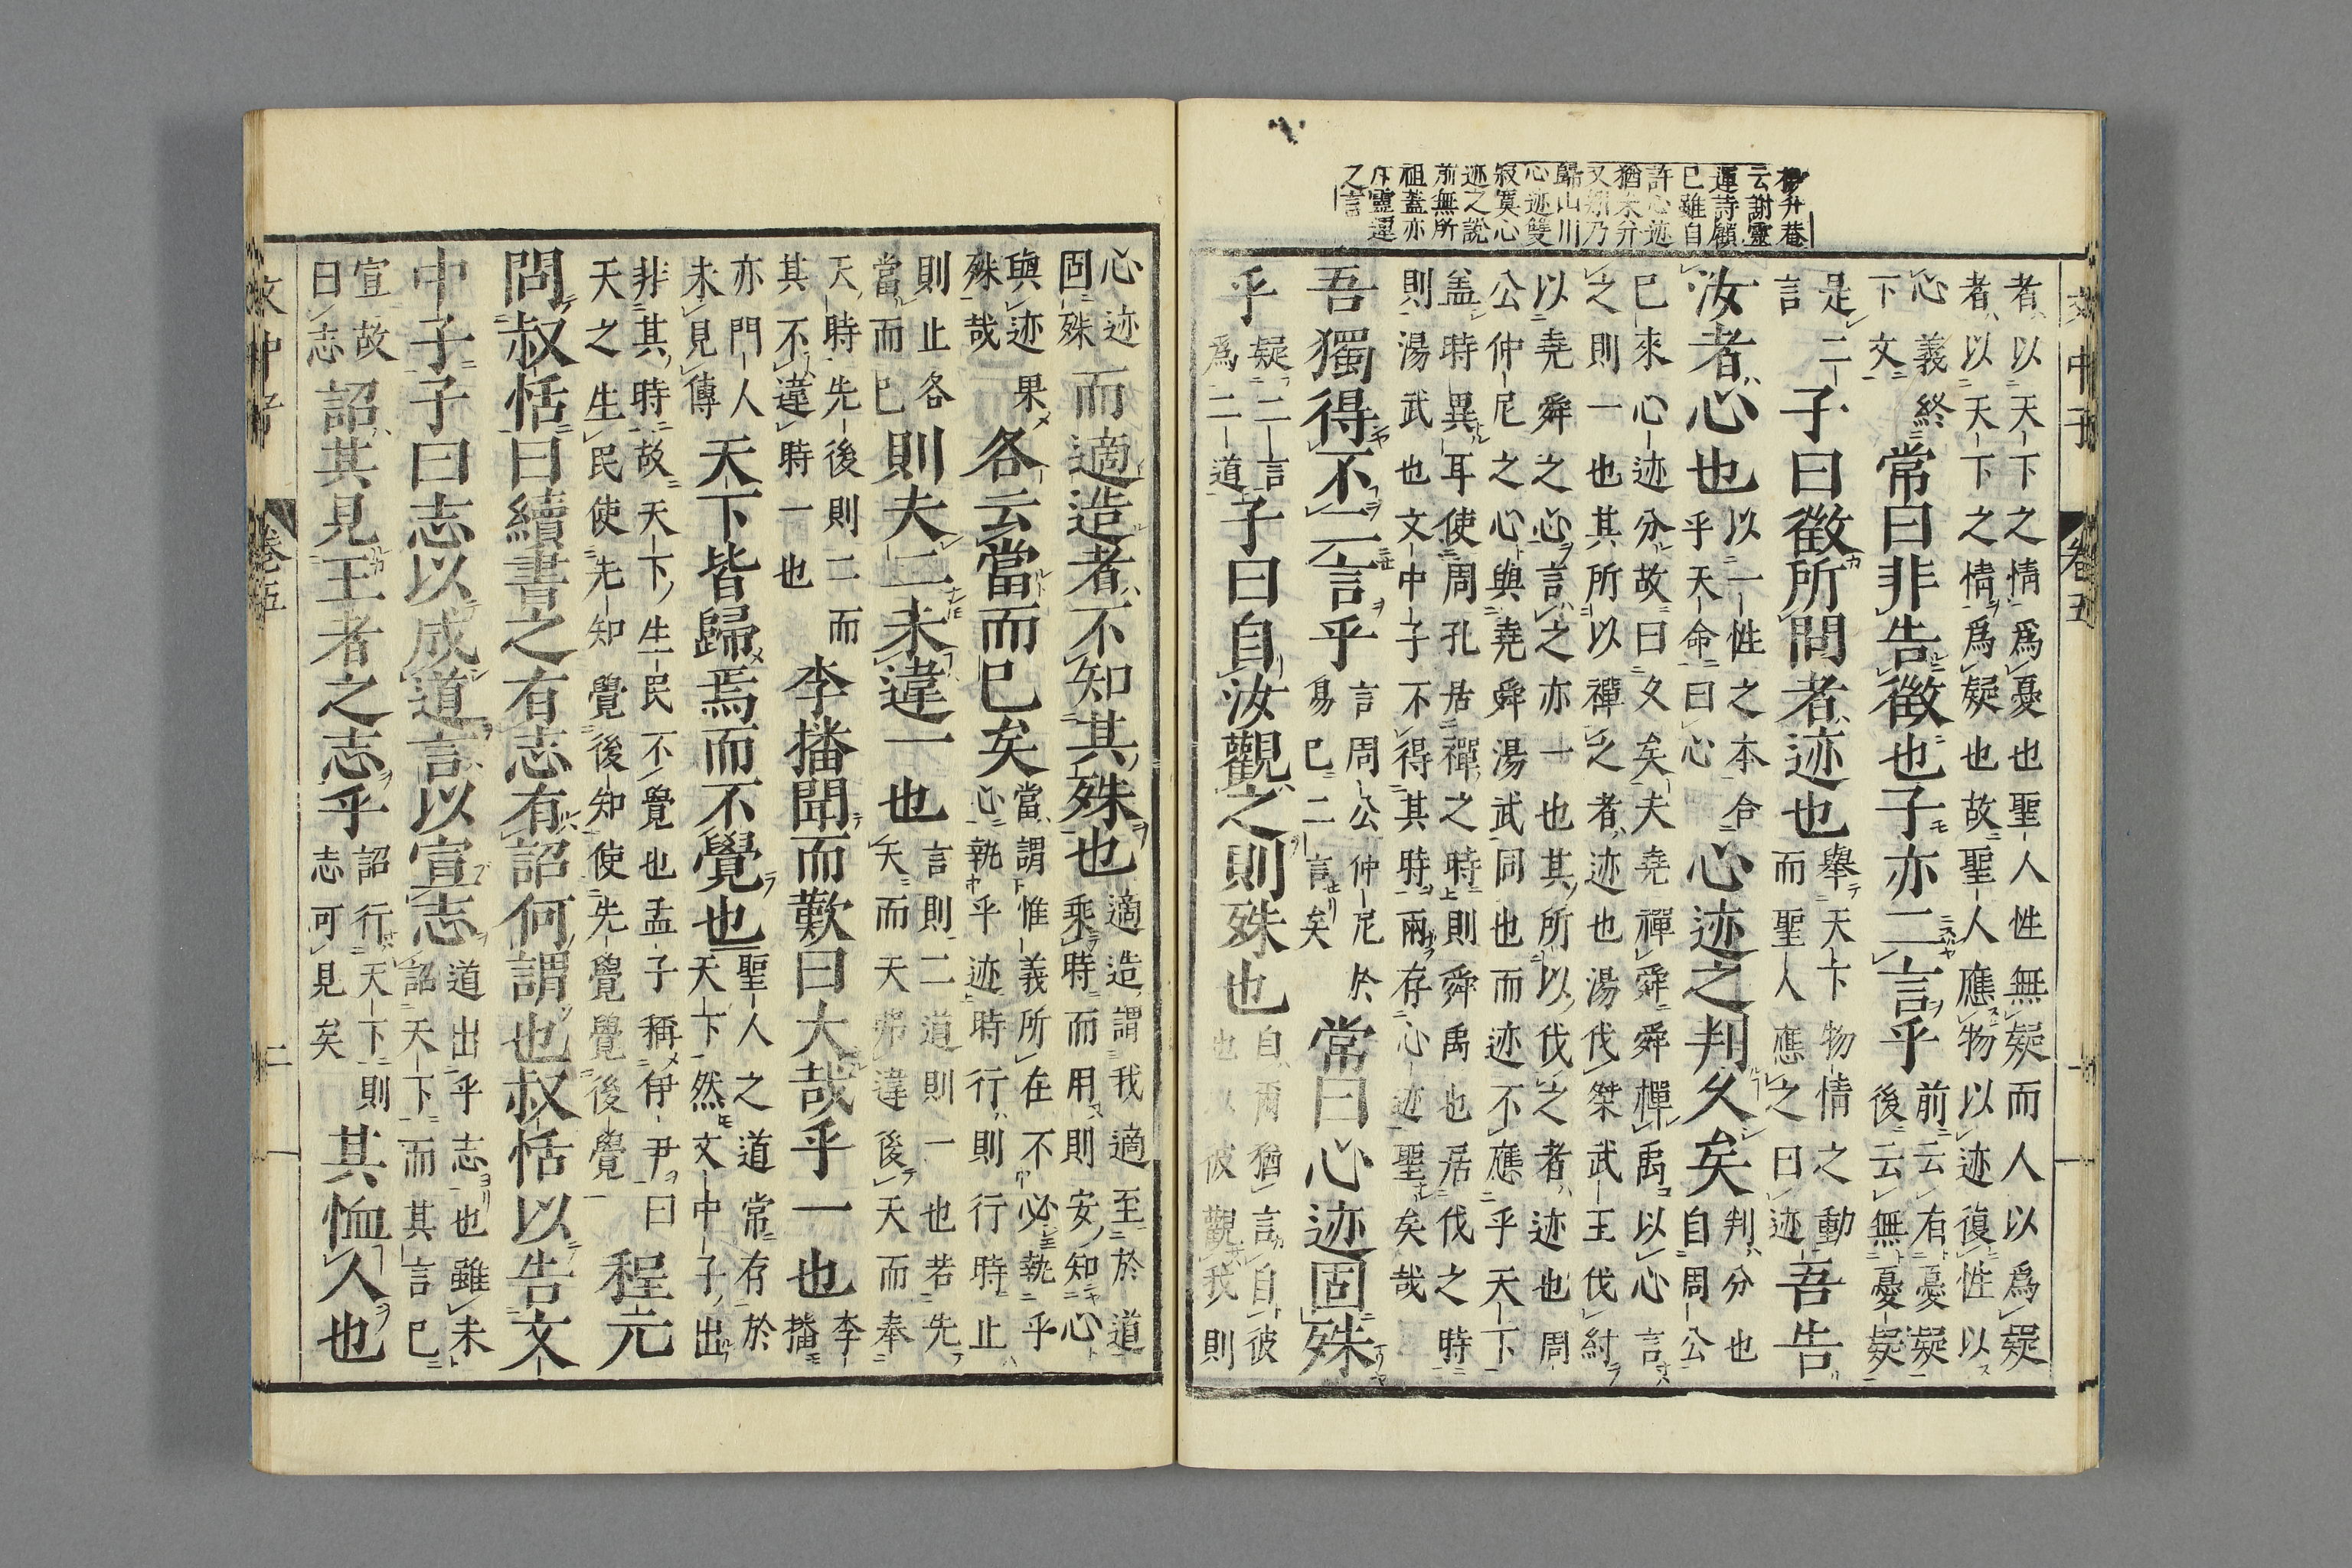 楊升菴
云謝靈
運詩顧
已雖自
許心迹
猶未分
又斯乃
歸山川
心迹雙
寂寞心
迹之說
前無所
祖蓋亦
斥靈運
之言
文中子 卷五
者以天下之情爲憂也聖人性無疑而人以爲疑
者以天下之情爲疑也故聖人應物以迹復性以
心義終
下文
常曰非告徵也子亦二言乎
前云有憂疑
後云無憂疑
是二
言
子曰徵所問者迹也
舉天下物情之動
而聖人應之曰迹
吾告
汝者心也
以一性之本合
乎天命曰心
心迹之判久矣
判分也
自周公
已來心迹分故曰久矣夫堯禪舜舜禪禹以心言
之則一也其所以禪之者迹也湯伐桀武王伐紂
以堯舜之心言之亦一也其所以伐之者迹也周
公仲尼之心與堯舜湯武同也而迹不應乎天下
蓋時異耳使周孔居禪之時則舜禹也居伐之時
則湯武也文中子不得其時兩存心迹聖矣哉
吾獨得不二言乎
言周公仲尼於
易已二言矣
常曰心迹固殊
乎
疑二言
爲二道
子曰自汝觀之則殊也
自爾猶言自彼
也以彼觀我則
心迹
固殊
而適造者不知其殊也
適造謂我適至於道
乘時而用則安知心
與迹果
殊哉
各云當而已矣
當謂惟義所在不必執乎
心執乎迹時行則行時止
則止各
當而已
則夫二未違一也
言則二道則一也若先
天而天弗違後天而奉
天時先後則二而
其不違時一也
李播聞而歎曰大哉乎一也
李
播
亦門人
未見傳
天下皆歸焉而不覺也
聖人之道常存於
天下然文中子出
非其時故天下生民不覺也孟子稱伊尹曰
天之生民使先知覺後知使先覺覺後覺
程元
問叔恬曰續書之有志有詔何謂也叔恬以告文
中子子曰志以成道言以宣志
道出乎志也雖未
詔天下而其言已
宣故
曰志
詔其見王者之志乎
詔行天下則
志可見矣
其恤人也
文中子 卷五 二